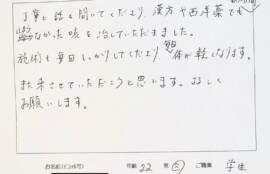 丁寧に話を聞いてくださり、漢方や西洋薬でも
治らなかった咳を治していただきました。
施術も毎回しっかりしてくださり、体が軽くなります。
また来させていただこうと思います。よろしく
お願いします。
お名前(イニシャル可) 年齢 22 男 女 ご職業 学生